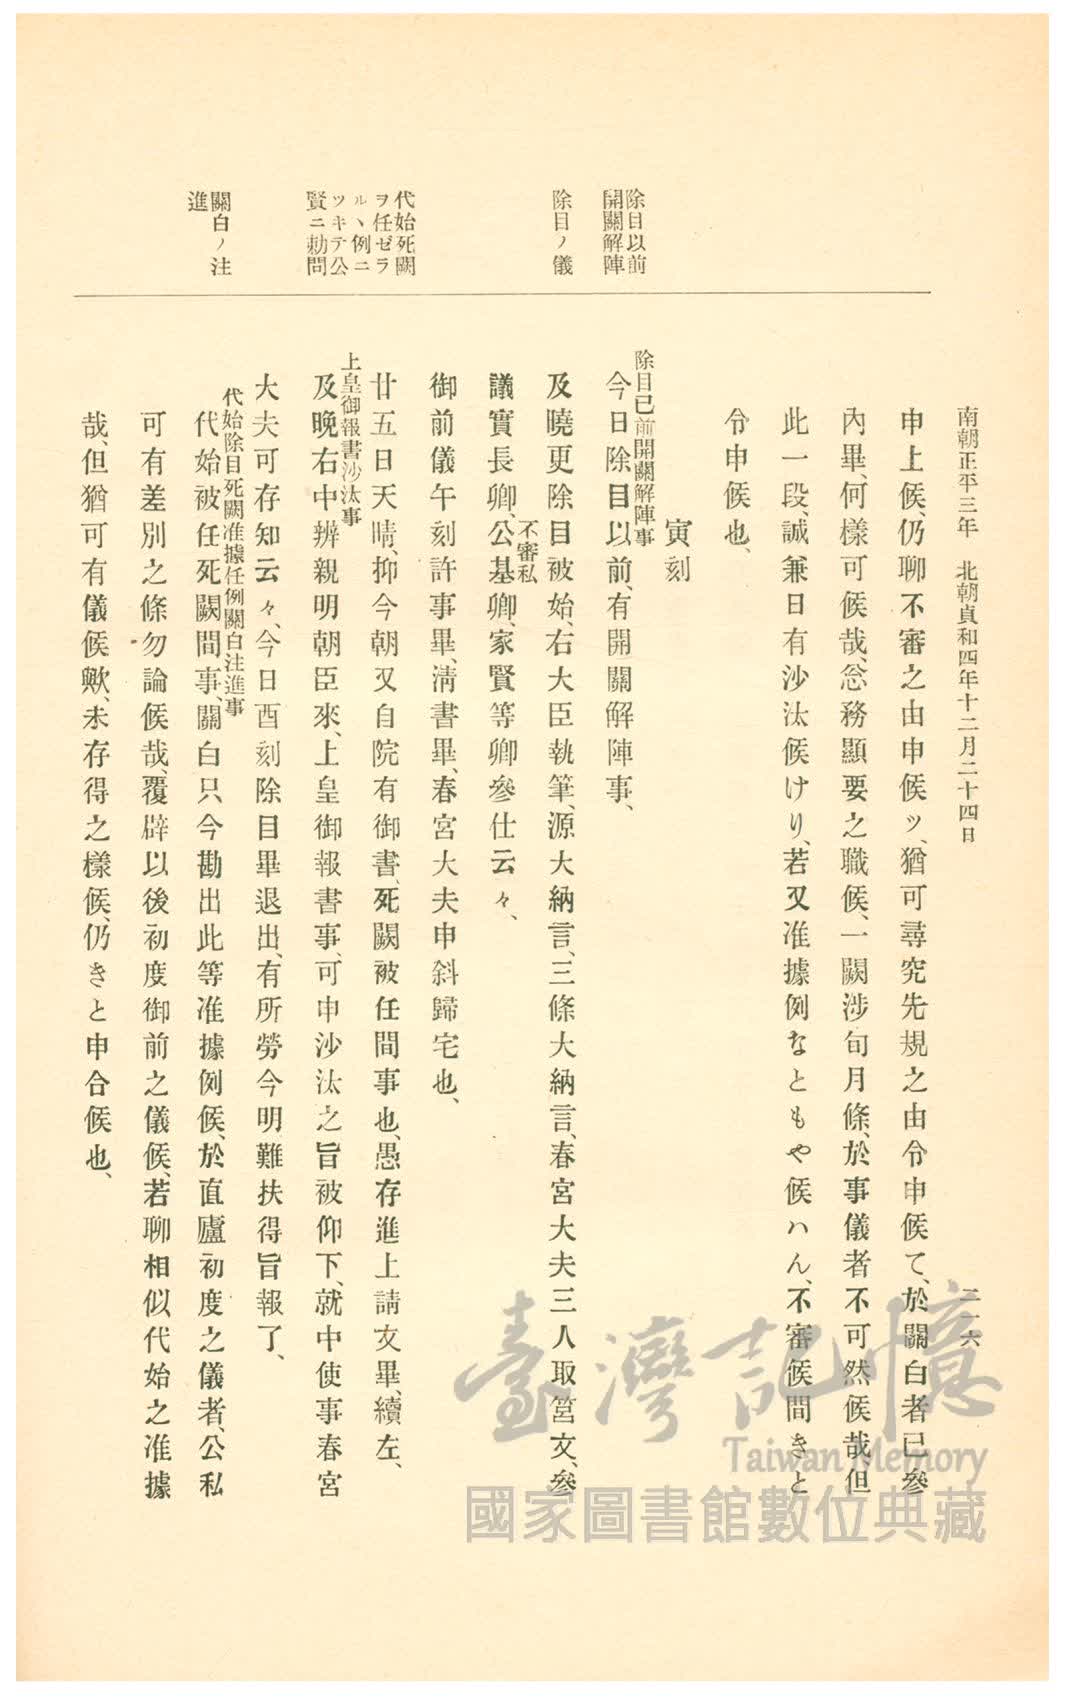 南朝正平三年　北朝貞和四年十二月二十四日
二一六
申上候、仍聊不審之由申候ッ、猶可尋究先規之由令申候て、於關白者已參
內畢、何樣可候哉、忩務顯要之職候、一闕涉旬月條、於事儀者不可然候哉、但
此一段、誠兼日有沙汰候けり、若又准據例なともや候ハん、不審候間きと
令申候也、
寅刻
除目已前開關解陣事
今日除目以前、有開關解陣事、
及曉更除目被始、右大臣執筆、源大納言、三條大納言、春宮大夫三人取筥文、參
議實長卿、公基卿、家賢等卿參仕云々、
不審私
御前儀午刻許事畢、淸書畢、春宮大夫申斜歸宅也、
廿五日天晴、抑今朝又自院有御書、死闕被任間事也、愚存進上請文畢、續左、
上皇御報書沙汰事
及晚右中辨親明朝臣來、上皇御報書事、可申沙汰之旨被仰下、就中使事春宮
大夫可存知云々、今日酉刻除目畢退出、有所勞今明難扶得旨報了、
代始除目死闕准據任例關白注進事
代始被任死闕間事、關白只今勘出此等准據例候、於直廬初度之儀者、公私
可有差別之條勿論候哉、覆辟以後初度御前之儀候、若聊相似代始之准據
哉、但猶可有儀候歟、未存得之樣候、仍きと申合候也、
除目以前
開關解陣
除目ノ儀
代始死闕
ヲ任ゼラ
ルヽ例ニ
ツキテ公
賢ニ勅問
關白ノ注
進
臺灣記憶
Taiwan Memory
國家圖書館數位典藏